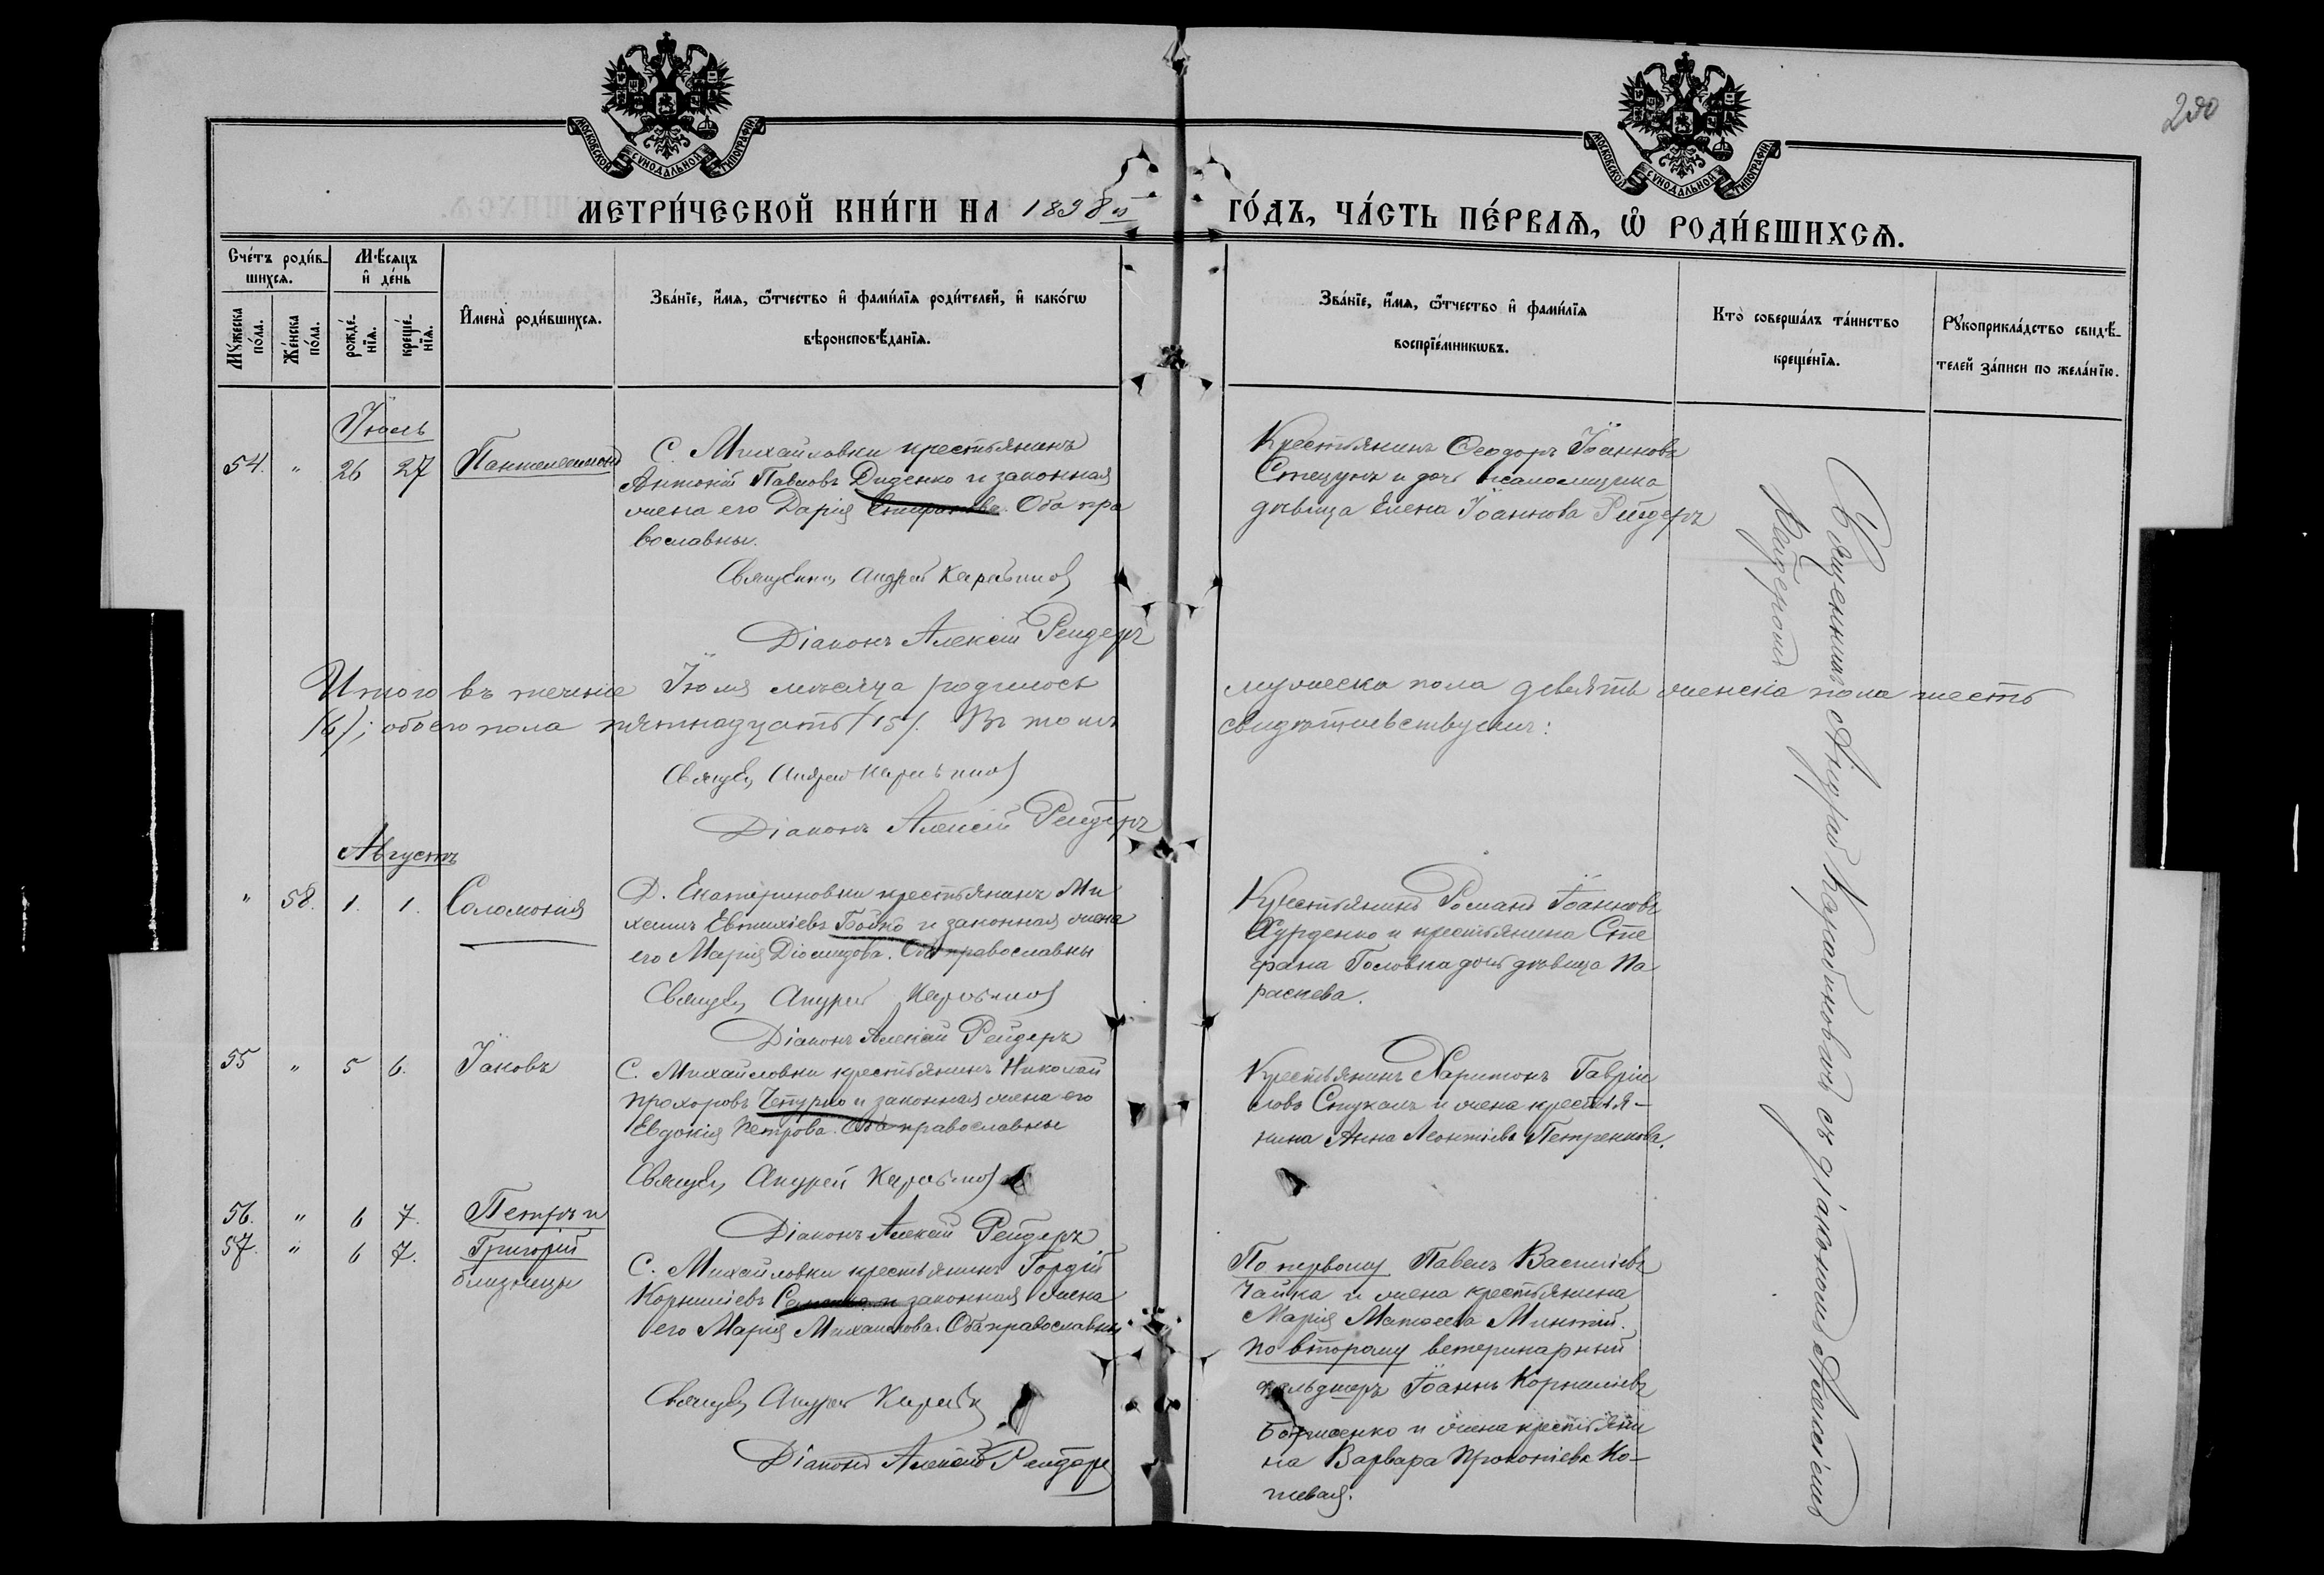 200
МОСКОВСКОЙ СѴНОДАЛЬНОЙ ТИПОГРАФІИ
МОСКОВСКОЙ СѴНОДАЛЬНОЙ ТИПОГРАФІИ
МЕТРИ́ЧЕСКОЙ КНИ́ГИ НА 1898 й
ГО́ДЪ, ЧА́СТЬ ПЕ́РВАѦ, Ѡ РОДИ́ВШИХСѦ.
Сче́тъ роди́в-
шихсѧ.
Мꙋ́жеска по́ла.
Же́нска по́ла.
Мѣ́сѧцъ
и де́нь
рожде́-
нїѧ.
креще́-
нїѧ.
И҆мена̀ роди́вшихсѧ.
Зва́нїе, и҆́мѧ, ѻ҆́тчество и҆ фами́лїѧ роди́телей, и҆ како́гѡ
вѣроисповѣ́данїѧ.
Зва́нїе, и҆́мѧ, ѻ҆́тчество и҆ фами́лїѧ
воспрїе́мникѡвъ.
Кто̀ соверша́лъ та́инство
креще́нїѧ.
Рꙋкоприкла́дство свидѣ́-
телей за́писи по жела́нїю.
Іюль
54. " 26 27 Пантелеимонъ
С. Михайловки крестьянинъ
Антоній Павловъ Диденко и законная
жена его Дарія Оба пра
вославны.
Священ. Андрей Карабиновъ
Діаконъ Алексій Рейдеръ
Крестьянинъ Ѳеодоръ Іоанновъ
Стецунъ и дочь псаломщика
дѣвица Елена Іоаннова Рейдеръ
Итого въ теченіе Іюля мѣсяца родилось
мужеска пола девять женска пола шесть
/6/; обоего пола пятнадцать /15/. Въ томъ
свидѣтельствуемъ:
Священ. Андрей Карабиновъ
Діаконъ Алексій Рейдеръ
Августъ
" 58. 1. 1. Саломонія
Д. Екатериновки крестьянинъ Ми
хаилъ Евтихіевъ Бойко и законная жена
его Марія Діомидова. Оба православны
Священ. Андрей Карабиновъ
Діаконъ Алексій Рейдеръ
Крестьянинъ Романъ Іоанновъ
и крестьянина Сте
фана Головка дочь дѣвица Па
раскева.
55 " 5 6. Іаковъ
С. Михайловки крестьянинъ Николай
Прохоровъ Чепурко и законная жена его
Евдокія Петрова. Оба православны
Священ. Андрей Карабиновъ
Діаконъ Алексій Рейдеръ
Крестьянинъ Харитонъ Гавріи
ловъ Стукалъ и жена крестья-
нина Анна Леонтіева Петренкова.
56. " 6 7. Петръ и
57. " 6 7. Григорій
близнецы
С. Михайловки крестьянинъ Гордій
Корниліевъ законная жена
его Марія Михаилова. Оба православны
Священ. Андрей Караби
Діаконъ Алексій Рейдеръ
По первому Павелъ Василіевъ
Чайка и жена крестьянина
Марія Матѳеева
По второму ветеринарный
фельдшеръ Іоаннъ Корниліевъ
и жена крестьяни
на Варвара Прокопіева Ко-
шевая.
Священникъ Андрей Карабиновъ съ діакономъ Алексіемъ
Рейдеромъ